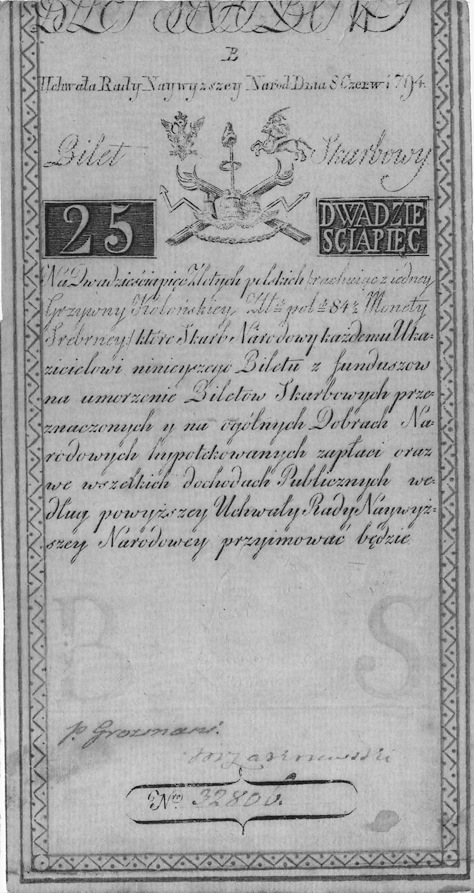 B
Uchwała Rady Naywyzszey Narod: Dnia 8 Czerw: 1794.
Bilet Skarbowy
25 DWADZIE
SCIAPIEC
Na Dwadzieściapięc Złotych polskich rachuiąc z iedney
Grzywny Kolońskiey Zł: pol: 84½ Monety
Srebrney, które Skarb Narodowy każdemu Uka-
zicielowi ninieyszego Biletu z funduszow
na umorzenie Biletów Skarbowych prze-
znaczonych y na ogólnych Dobrach Na-
rodowych hypotekowanych zapłaci oraz
we wszelkich dochodach Publicznych we-
dług powyższey Uchwały Rady Naywyż-
szey Narodowey przyimować będzie
B S
P. Grozmani.
Nro 32806.